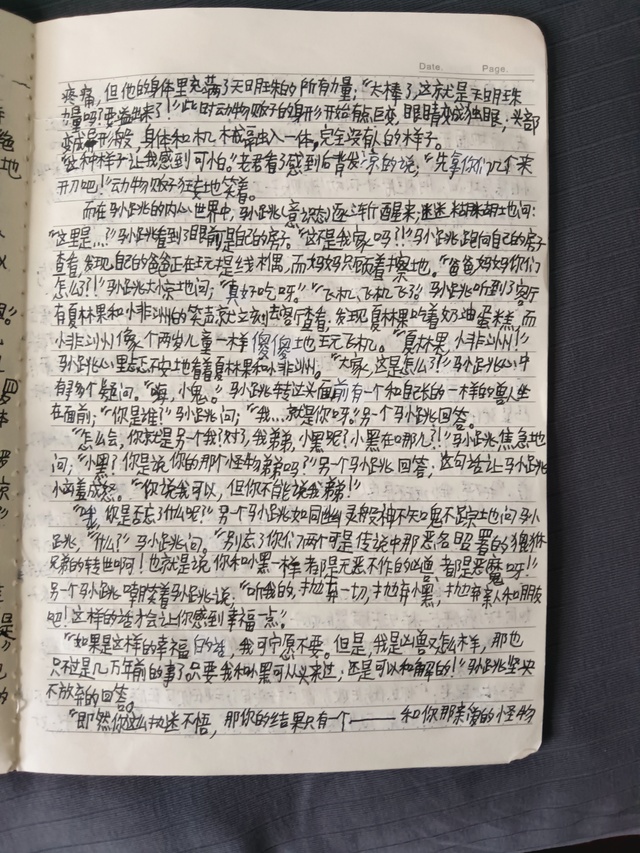 Date.    Page.
疼痛，但他的身体里充满了天明珠的所有力量；“太棒了，这就是天明珠
力量吗？要溢出来了！”此时动物贩子的身形开始有巨变，眼睛变成独眼，头部
变成异形般，身体和机械融入一体，完全没有人的样子。
“这种样子让我感到可怕。”老君看了感到后背发凉的说；“先拿你们几个来
开刀吧！”动物贩子狂妄地笑着。
而在马小跳的内心世界中，马小跳（意识态）逐渐醒来；迷迷糊糊地问：
“这里是...？”马小跳看到了眼前是自己的房子。“这不是我家吗？！”马小跳跑向自己的房子
查看，发现自己的爸爸正在玩提线木偶，而妈妈只顾着擦地。“爸爸妈妈你们
怎么了？！”马小跳大惊地问；“真好吃呀。”“飞机、飞机飞？。马小跳听到了客厅
有夏林果和小非洲的笑声就立刻去客厅查看，发现夏林果吃着奶油蛋糕，而
小非洲像个两岁儿童一样傻傻地玩飞机。“夏林果，小非洲！”
马小跳心里忐忑不安地看着夏林果和小非洲。“大家，这是怎么了？”马小跳心中
有多个疑问。“嗨，小鬼。”马小跳转过头面前有一个和自己长的一样的兽人坐
在面前；“你是谁？”马小跳问；“我...就是你呀。”另一个马小跳回答。
“怎么会，你就是另一个我？对了，我弟弟，小黑呢？小黑在哪儿？！”马小跳焦急地
问；“小黑？你是说你的那个怪物弟弟吗？”另一个马小跳回答；这句话让马小跳
恼羞成怒。“你说我可以，但你不能说我弟弟！”
你是否忘了什么呢？”另一个马小跳如同幽灵般神不知鬼不觉地问马小
跳，“什么？”马小跳问。“别忘了你们两个可是传说中那恶名昭著的
兄弟的转世啊！也就是说你和小黑一样都是无恶不作的凶兽，都是恶魔呀！”
另一个马小跳嘲笑着马小跳说；“听我的，抛弃一切，抛弃小黑，抛弃亲人和朋友
吧！这样的话才会让你感到幸福一点。”
“如果是这样的幸福的话，我可宁愿不要。但是，我是凶兽又怎么样，那也
只不过是几万年前的事了。只要我和小黑可从头来过，还是可以和解的！”马小跳坚决
不放弃的回答。
“即然你这么执迷不悟，那你的结果只有一个———和你那亲爱的怪物